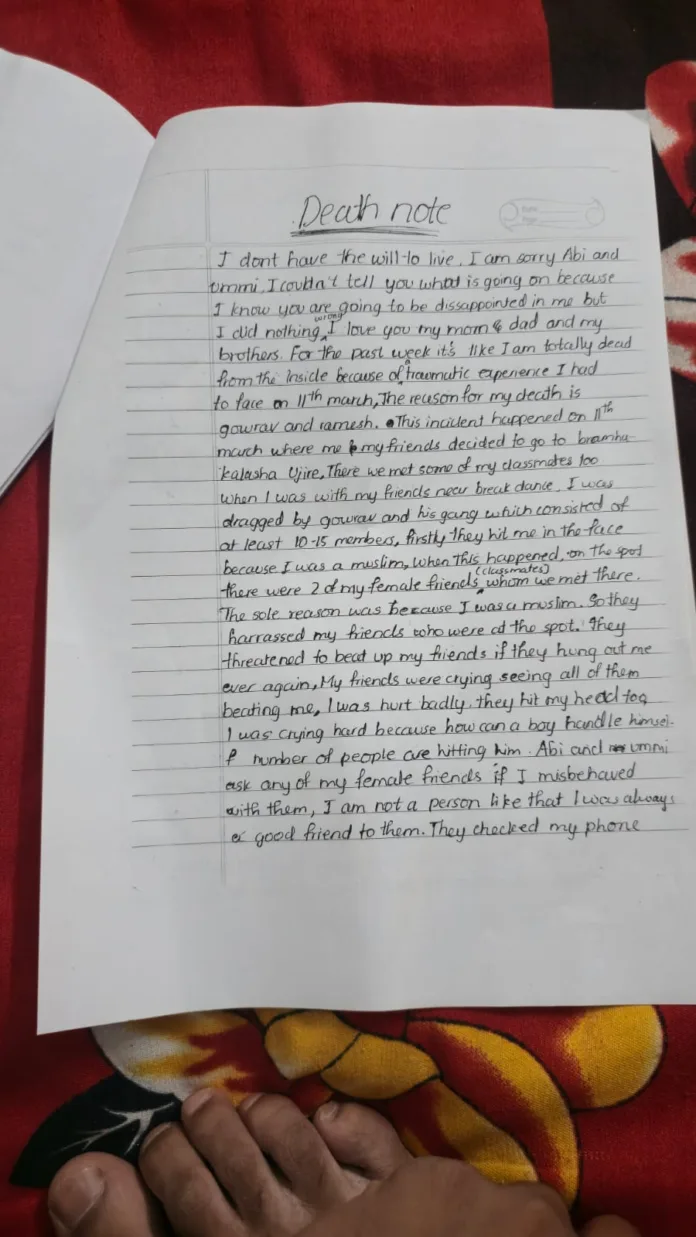 Death note
I dont have the will to live. I am sorry Abi and
ummi, I couldn't tell you what is going on because
I know you are going to be dissappointed in me but
I did nothing wrong, I love you my mom & dad and my
brothers. For the past week it's like I am totally dead
from the inside because of traumatic experience I had
to face on 11th march, The reason for my death is
gowrav and ramesh. This incident happened on 11th
march where me & my friends decided to go to bramha
kalasha Ujire, There we met some of my classmates too
when I was with my friends near break dance, I was
dragged by gowrav and his gang which consisted of
at least 10-15 members, firstly they hit me in the face
because I was a muslim, when this happened, on the spot
there were 2 of my female friends (classmates) whom we met there.
The sole reason was because I was a muslim. So they
harrassed my friends who were at the spot. They
threatened to beat up my friends if they hung out me
ever again, My friends were crying seeing all of them
beating me, I was hurt badly. they hit my head too
I was crying hard because how can a boy handle himsel-
f number of people are hitting him. Abi and ummi
ask any of my female friends if I misbehaved
with them, I am not a person like that I was always
a good friend to them. They checked my phone